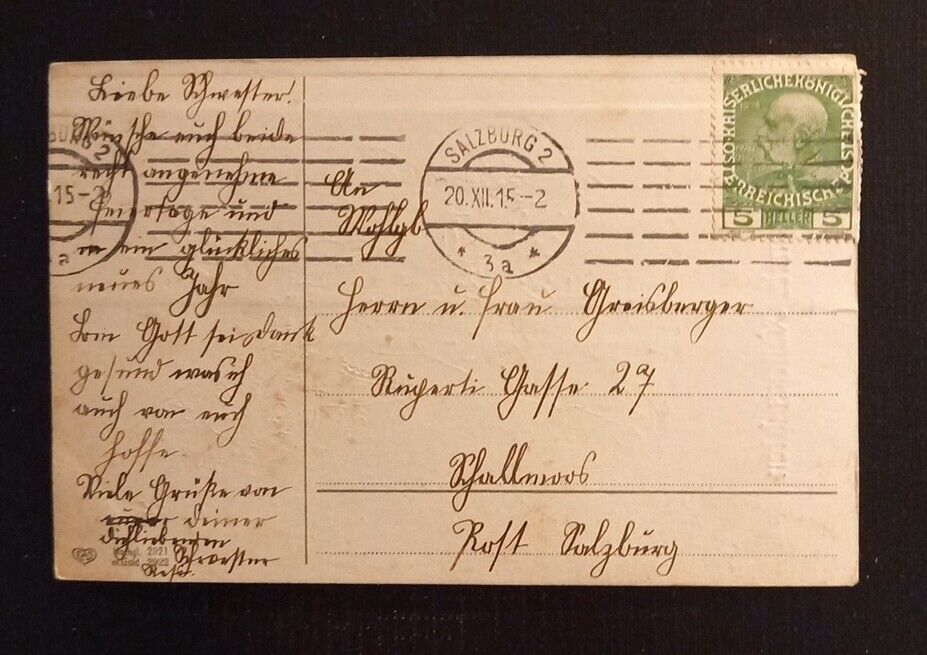 Liebe Schwester!
Wünsche euch beide
recht angenehme
Feiertage und
ein glückliches
neues Jahr
Bin Gott sei dank
gesund was ich
auch von euch
hoffe.
Viele Grüße von
deiner
dichliebenden
Schwester
Resi
2021
2022
BURG 2
15-2
a
SALZBURG 2
20.XII.15-2
* 3a *
KAISERLICHE KÖNIGLICHE
ÖSTERREICHISCHE
5 HELLER 5
An
Wohlgb
Herrn u. Frau Greisberger
Ruperti Gasse 27
Schallmoos
Post Salzburg